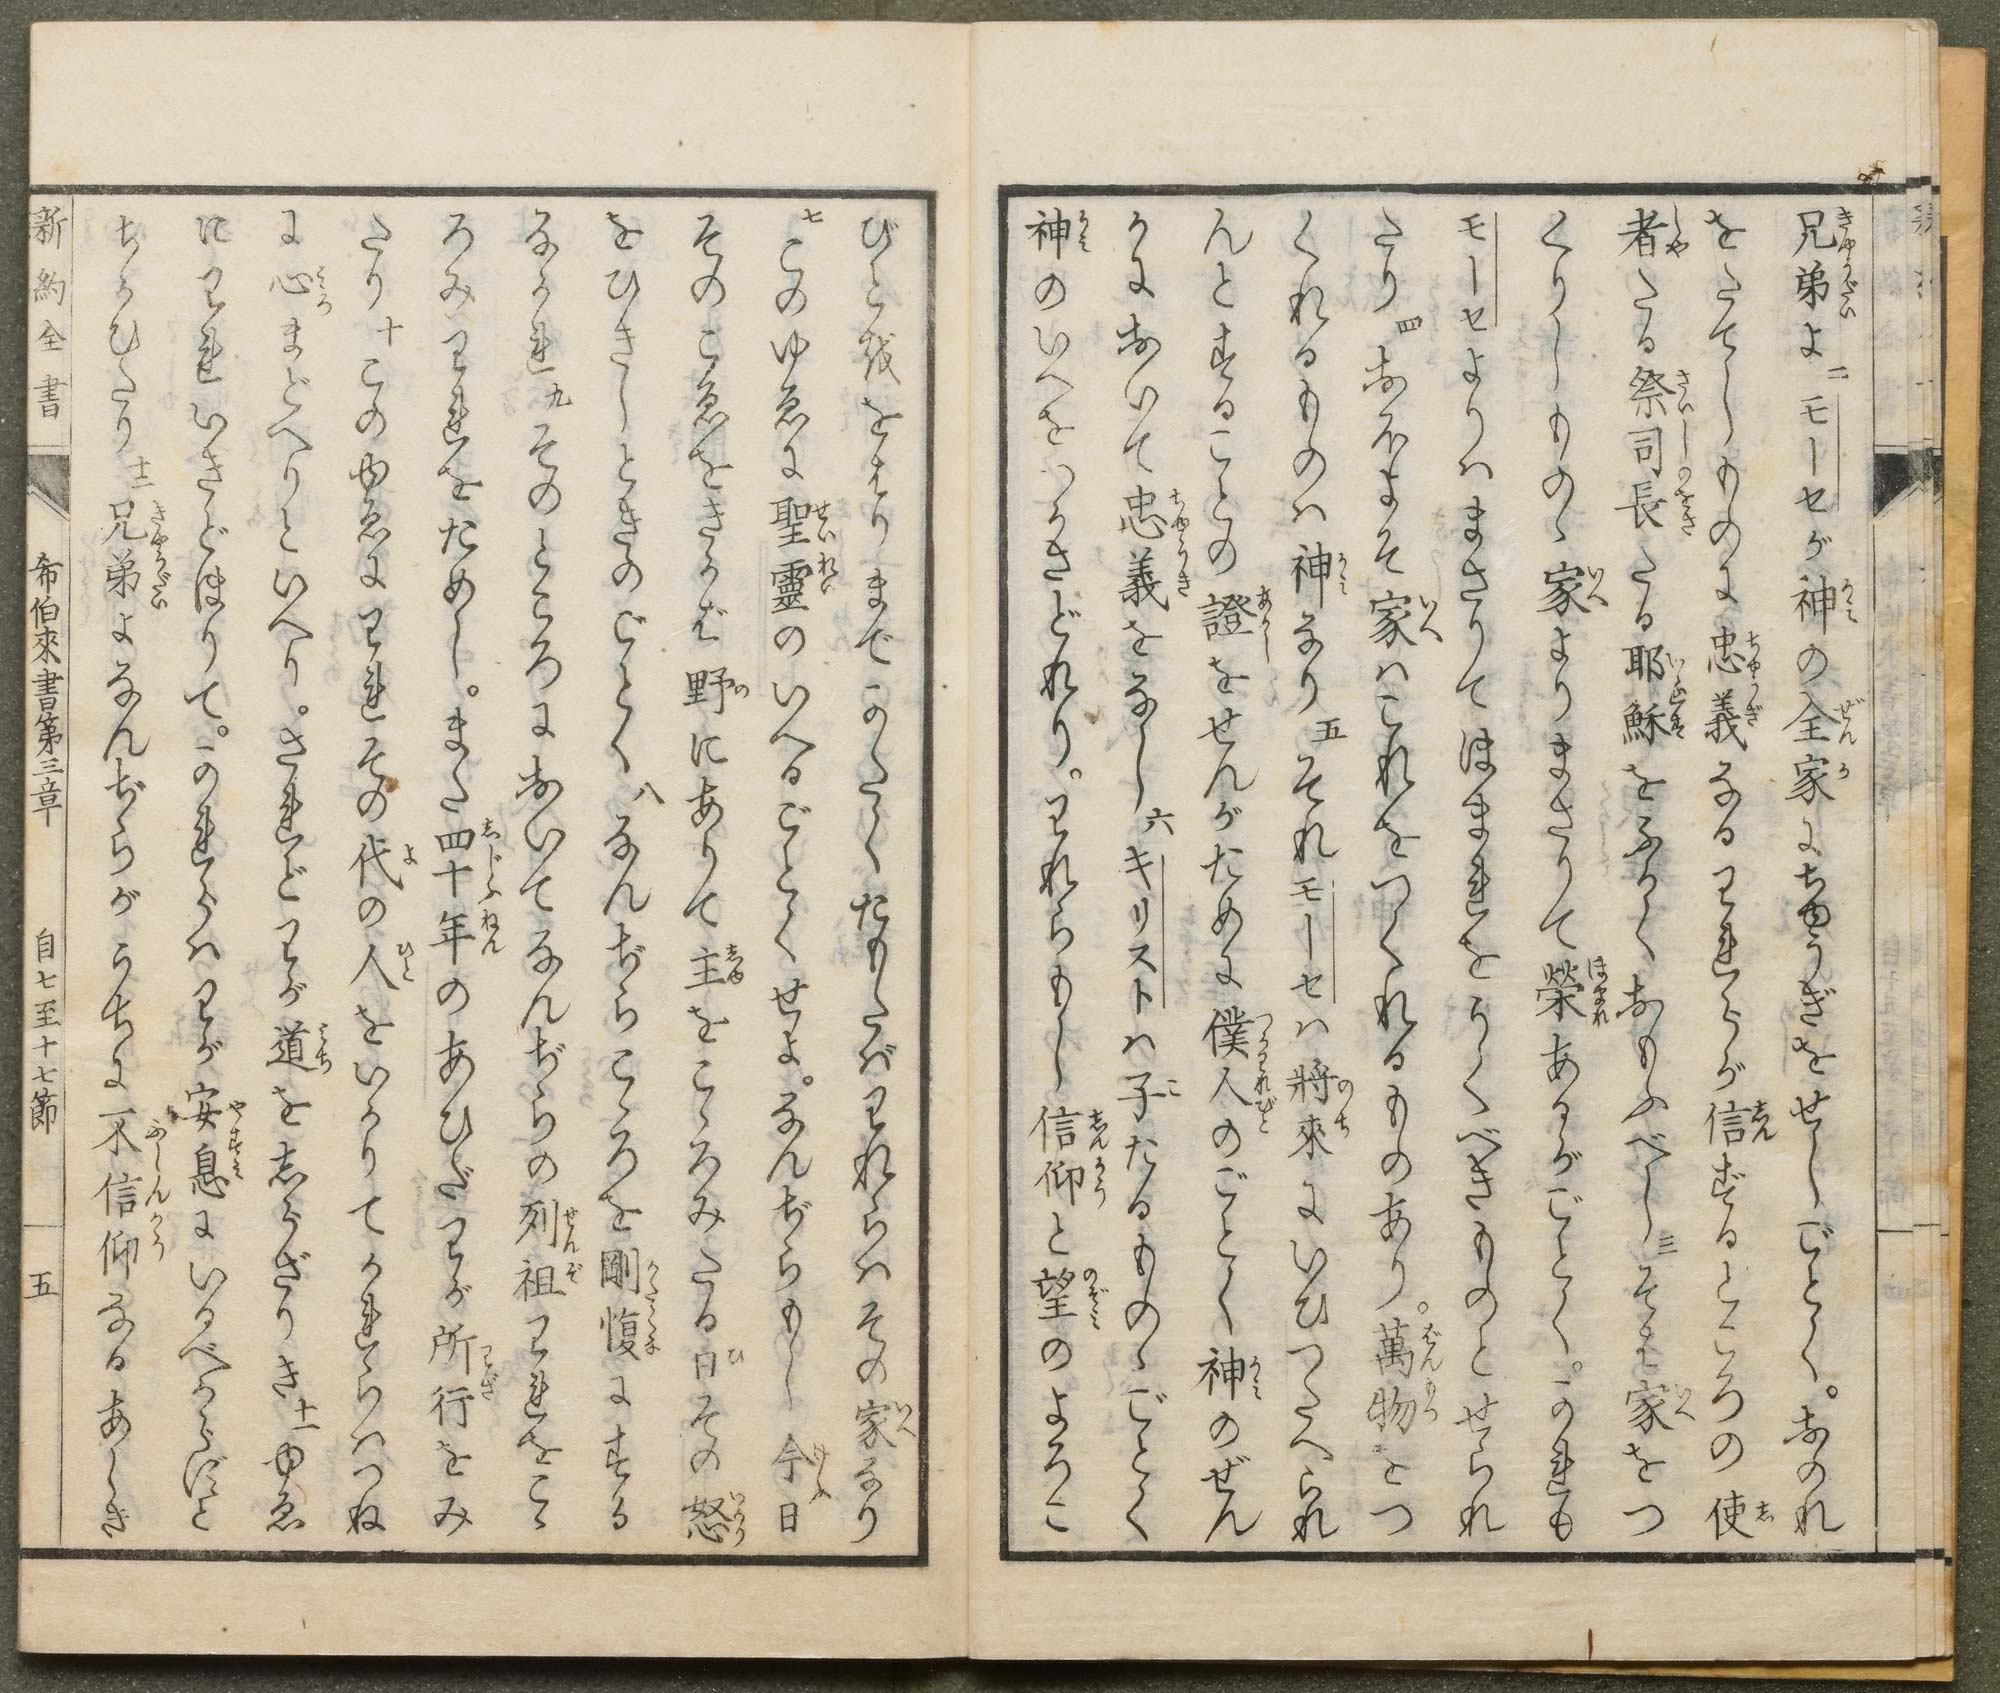 兄弟よ 二 モーセが神の全家にちゆうぎをせしごとく。おのれ
をたてしものに忠義なるわれらが信ずるところの使
者たる祭司長たる耶穌をふかくおもふべし 三 そは家をつ
くりしものゝ家よりまさりて榮あるがごとく。かれも
モーセよりハまさりてほまれをうくべきものとせられ
たり 四 おほよそ家ハこれをつくれるものあり。萬物をつ
くれるものハ神なり 五 それモーセハ將來にいひつたへられ
んとすることの證をせんがために僕人のごとく神のぜん
かにおいて忠義をなし 六 キリストハ子たるものゝごとく
神のいへをつかさどれり。われらもし信仰と望のよろこ
びとをおはりまでかたくたもたバわれらハその家なり
七 このゆゑに聖靈のいへるごとくせよ。なんぢらもし今日
そのこゑをきかバ野にありて主をこゝろみたる日その怒
をひきしときのごとく 八 なんぢらこころを剛愎にする
なかれ 九 そのところにおいてなんぢらの列祖われをこゝ
ろみわれをためし。また四十年のあひだわが所行をみ
たり 十 このゆゑにわれその代の人をいかりてかれらハつね
に心まどへりといへり。されどわが道をしらざりき 十一 ゆゑ
にわれいきどほりて。かれらハわが安息にいるべからずと
ちかひたり 十二 兄弟よなんぢらがうちに不信仰なるあしき
新約全書 希伯來書第三章 自七至十七節 五